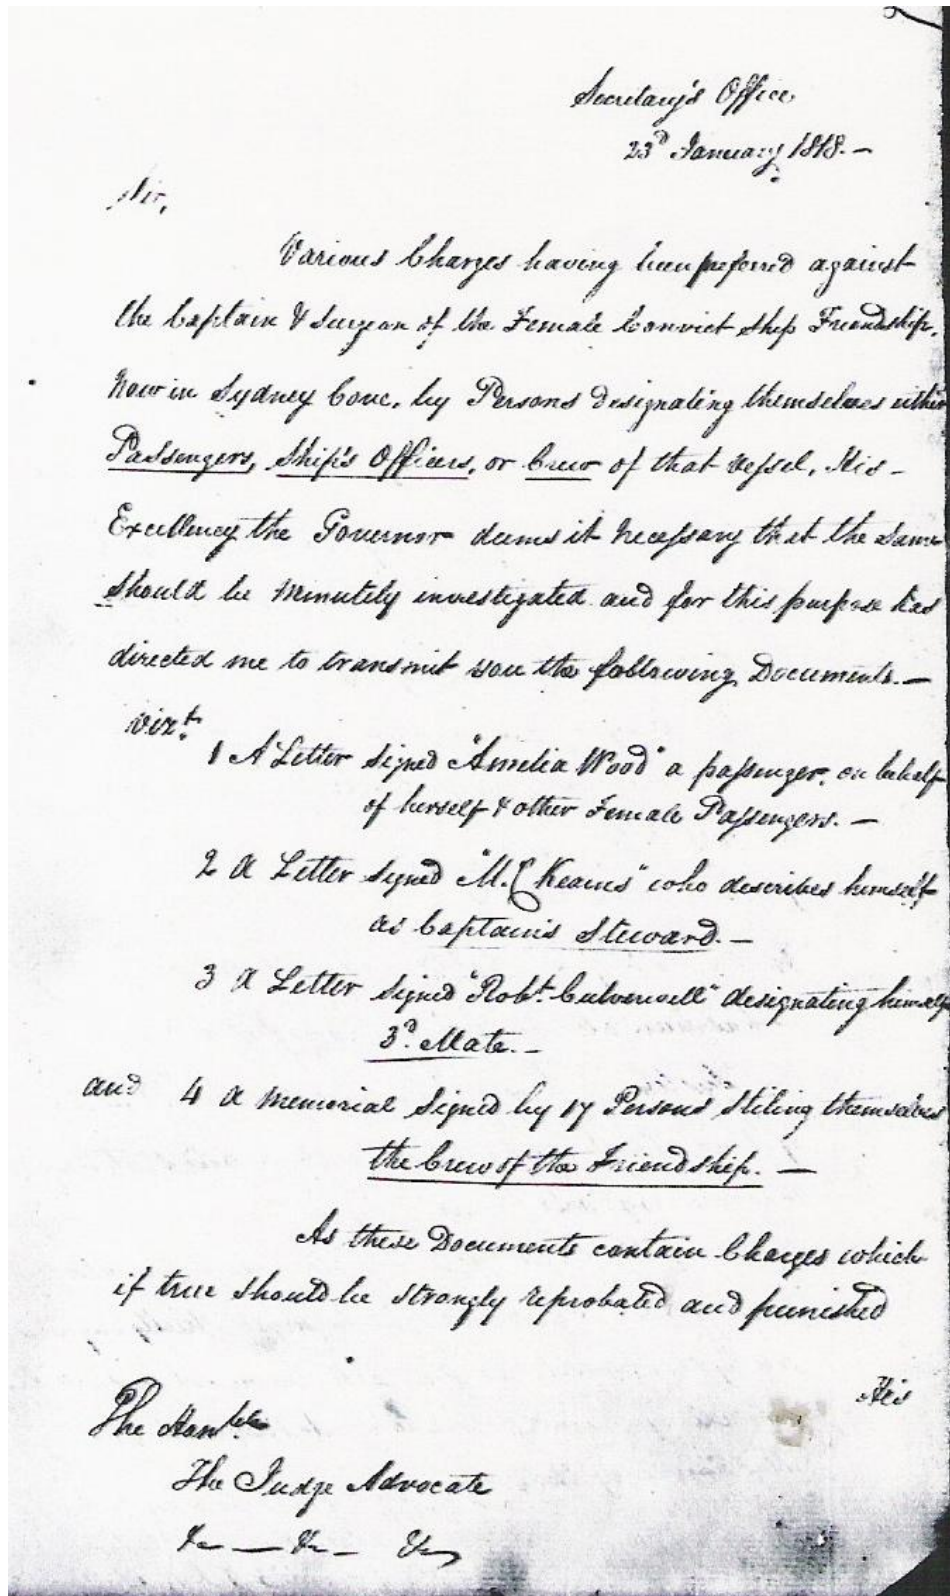 Secretary's Office
23d January 1818. —
Sir,
Various Charges having been preferred against
the Captain & Surgeon of the Female Convict Ship Friendship,
Now in Sydney Cove, by Persons designating themselves either
Passengers, Ship's Officers, or Crew of that Vessel, His
Excellency the Governor deems it Necessary that the Same
should be Minutely investigated and for this purpose has
directed me to transmit you the following Documents. —
Vizt.
1 A Letter Signed "Amelia Wood" a passenger, on behalf
of herself & other Female Passengers. —
2 A Letter Signed "M. C Keams" who describes himself
as Captain's Steward. —
3 A Letter Signed "Robt. Culverwell" designating himself
3d. Mate. —
and 4 A Memorial Signed by 17 Persons Stiling themselves
the Crew of the Friendship. —
As these Documents contain Charges which
if true should be strongly reprobated and punished
His
The Honble.
The Judge Advocate
&c — &c — &c